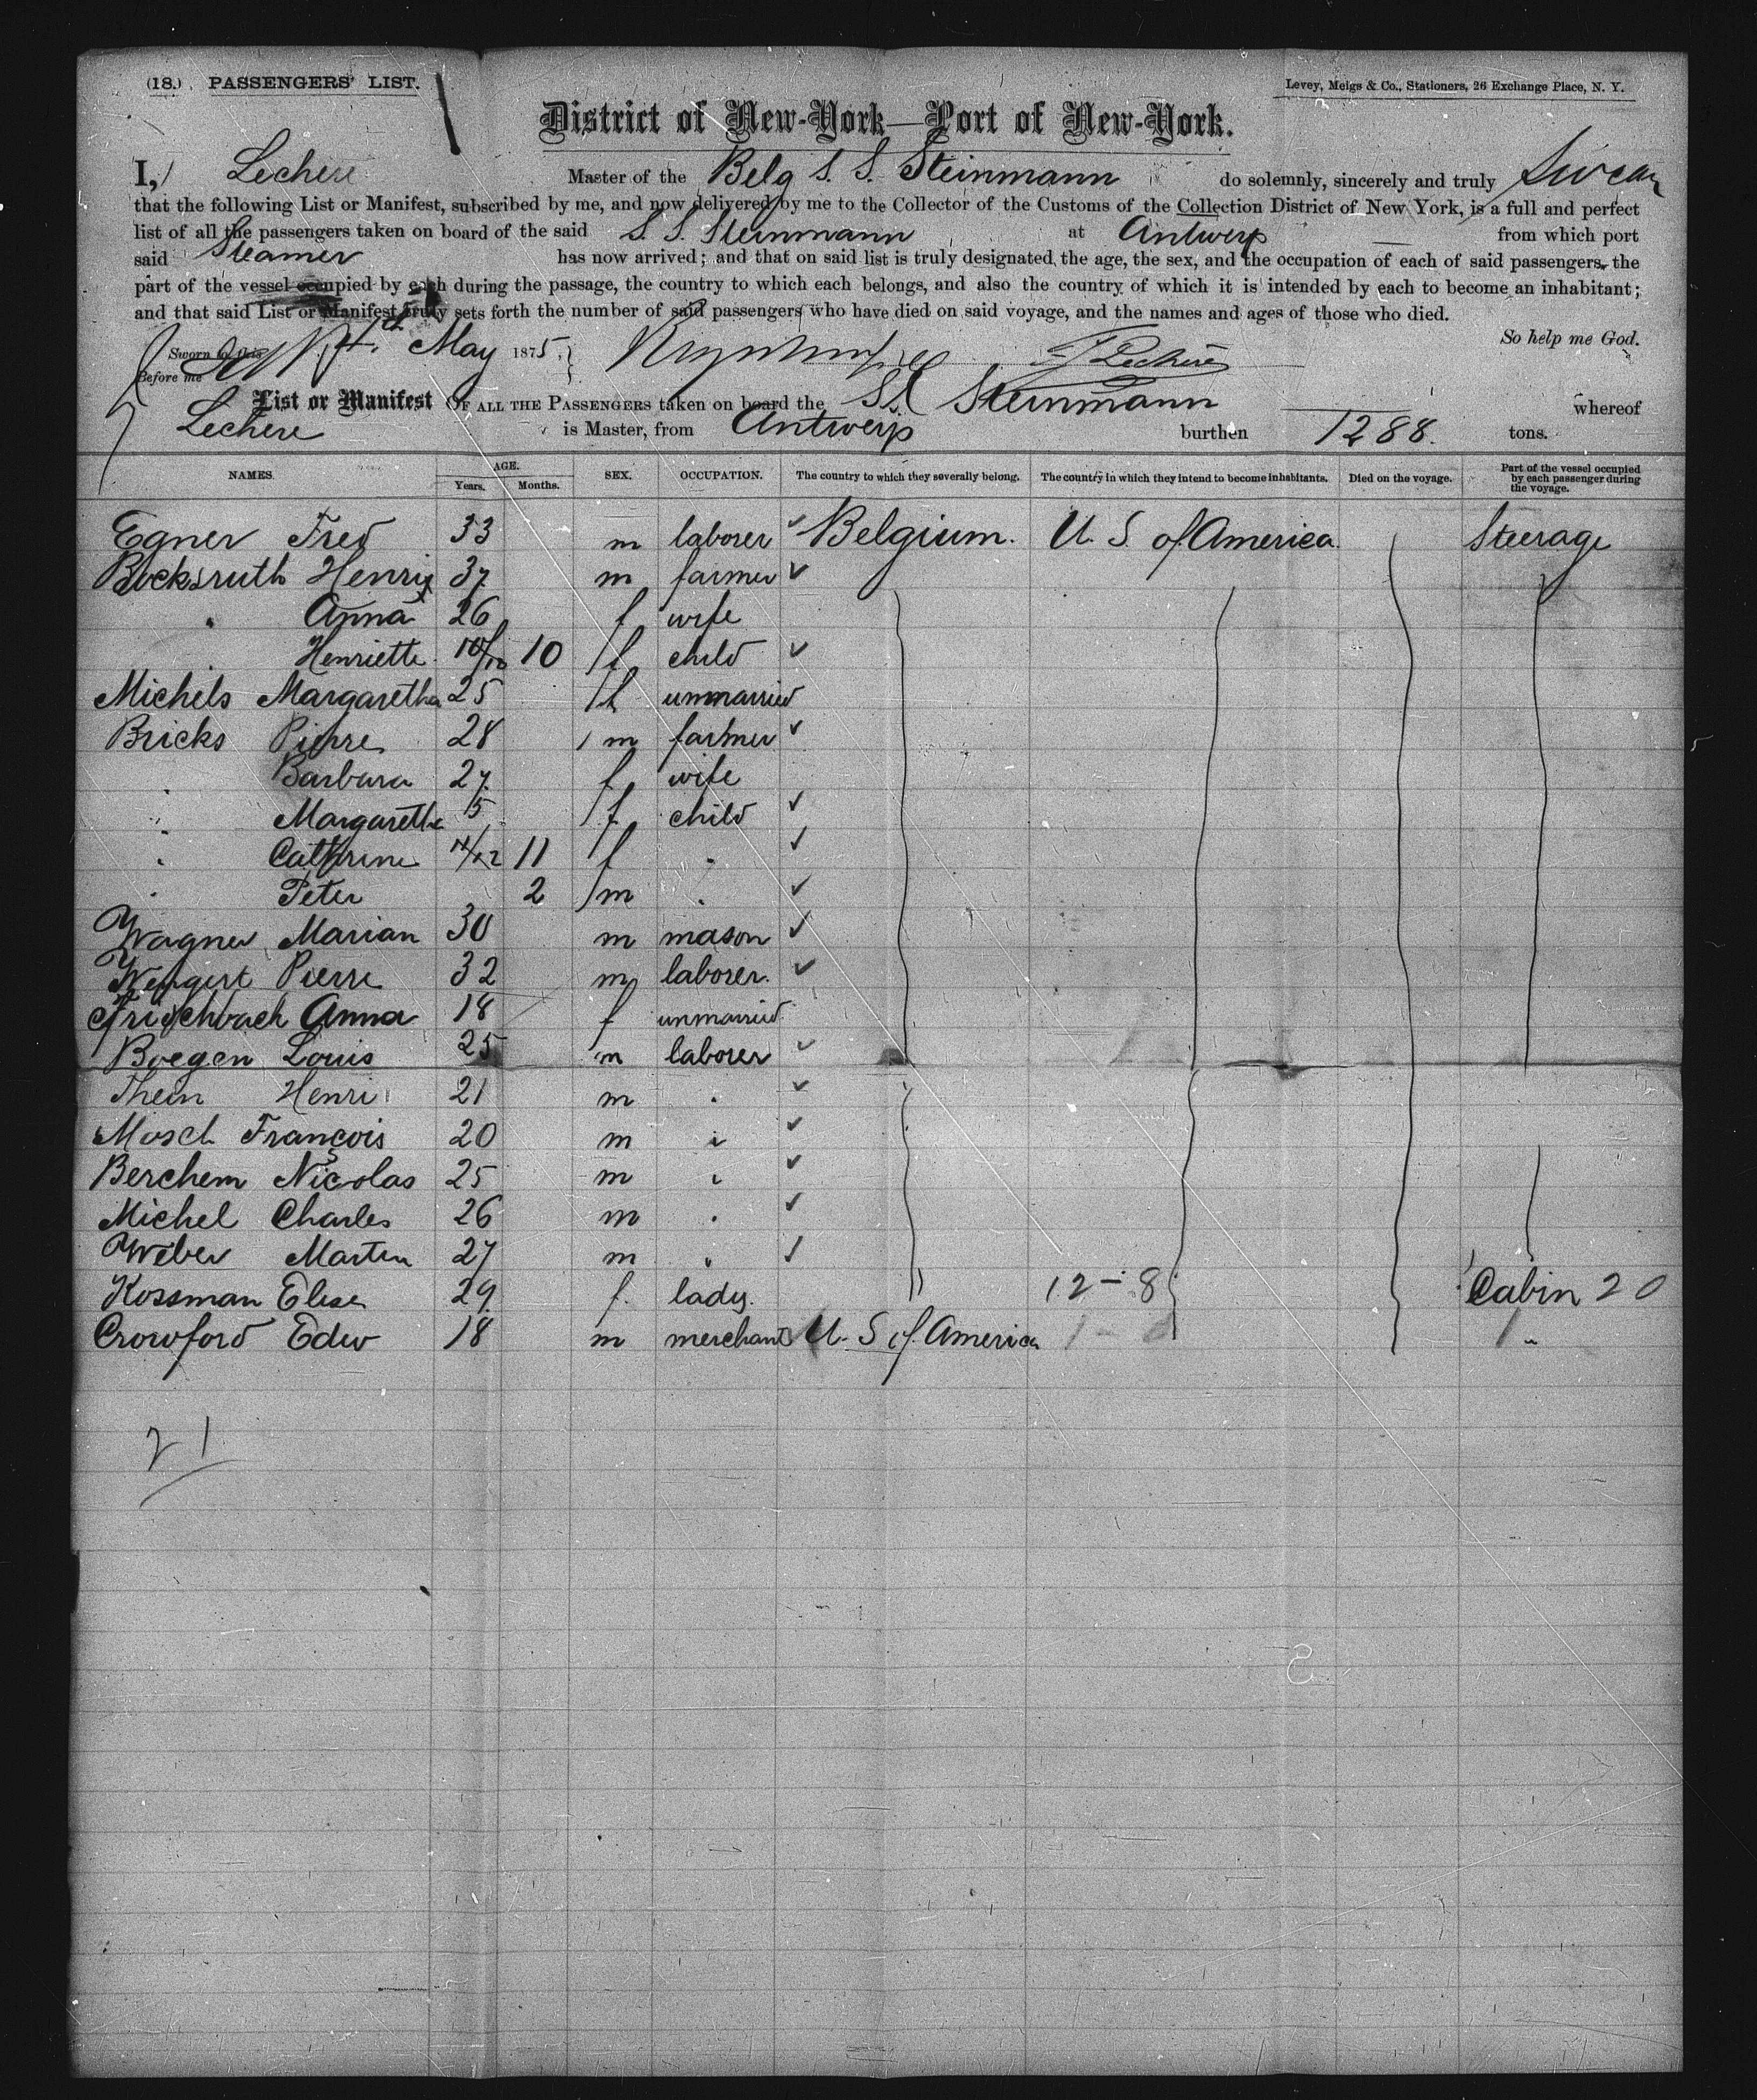 (18.) PASSENGERS' LIST.
Levey, Meigs & Co., Stationers, 26 Exchange Place, N. Y.
District of New-York—Port of New-York.
I, Lechere Master of the Belg S. S. Steinmann do solemnly, sincerely and truly swear
that the following List or Manifest, subscribed by me, and now delivered by me to the Collector of the Customs of the Collection District of New York, is a full and perfect
list of all the passengers taken on board of the said S. S. Steinmann at Antwerp from which port
said Steamer has now arrived; and that on said list is truly designated the age, the sex, and the occupation of each of said passengers, the
part of the vessel occupied by each during the passage, the country to which each belongs, and also the country of which it is intended by each to become an inhabitant;
and that said List or Manifest truly sets forth the number of said passengers who have died on said voyage, and the names and ages of those who died.
So help me God.
Sworn to this May 1875
Before me
List or Manifest OF ALL THE PASSENGERS taken on board the SS Steinmann whereof
Lechere is Master, from Antwerp burthen 1288. tons.
NAMES. AGE. Years. Months. SEX. OCCUPATION. The country to which they severally belong. The country in which they intend to become inhabitants. Died on the voyage. Part of the vessel occupied by each passenger during the voyage.
Egner Fred 33 m laborer Belgium. U. S. of America. Steerage
Bocksruth Henri 37 m farmer
" Anna 26 f wife
Henriette 10/12 10 f child
Michels Margaretha 25 f unmarried
Bricks Pierre 28 m farmer
" Barbara 27 f wife
" Margaretha 5 f child
" Cathrine 11/12 11 f "
" Peter 2 m "
Wagner Marian 30 m mason
Wengert Pierre 32 m laborer.
Frischbach Anna 18 f unmarried
Boegen Louis 25 m laborer
Thein Henri 21 m "
Mosch François 20 m "
Berchem Nicolas 25 m "
Michel Charles 26 m "
Weber Marten 27 m "
Kossman Elise 29. f. lady. 12-8 Cabin 20
Crowford Edw 18 m merchant U. S of America 1 "
21